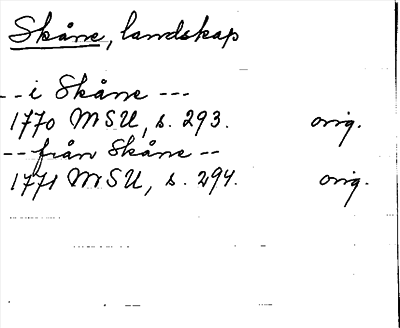 Skåne, landskap
-- i Skåne ---
1770 MSU, s. 293. orig.
-- från Skåne --
1771 MSU, s. 294. orig.